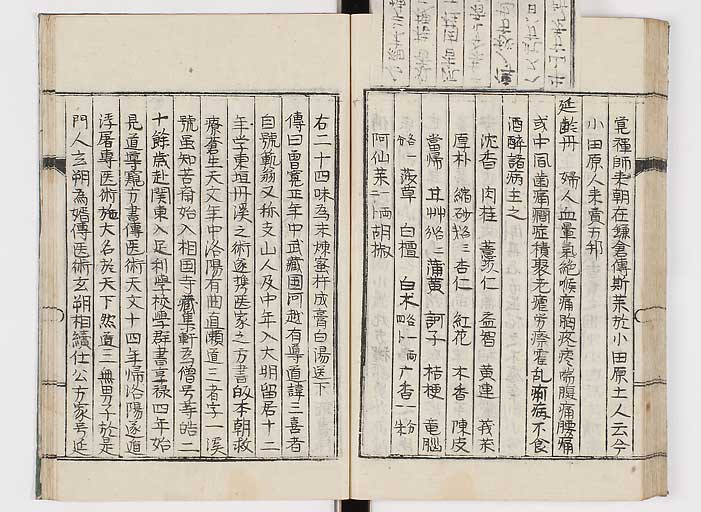 寛禪師来朝在鎌倉傳斯薬於小田原土人云今
小田原人来賣五邦
延齡丹 婦人血暈氣絶喉痛胸疼疼喘腹痛腰痛
或中風歯痛癇症積聚老瘧労瘵霍乱痢病不食
酒醉諸病主之
沈香 肉桂 薏苡仁 益智 黄連 莪朮
厚朴 縮砂 杏仁 紅花 木香 陳皮
當帰 甘艸 蒲黄 訶子 桔梗 竜脳
白檀 白朮 一両 一朱
阿仙薬一両 胡椒
右二十四味為末煉蜜杵成膏白湯送下
傳曰曽寛正年中武蔵国河越有導道諱三喜者
自號範翁又称支山人及中年入大明留居十二
年学東垣丹溪之術遂携医家之方書皈本朝救
療蒼生天文年中洛陽有曲直瀬道三者字一溪
號虽知苦斎始入相国寺藏集軒為僧号等皓二
十餘歳赴関東入足利学校学群書享禄四年始
見道導窺方書傳医術天文十四年帰洛陽遂遁
浮屠專医術施大名於天下然道三無男子於是
門人玄朔為婿傳医術玄朔相續仕公方家号延